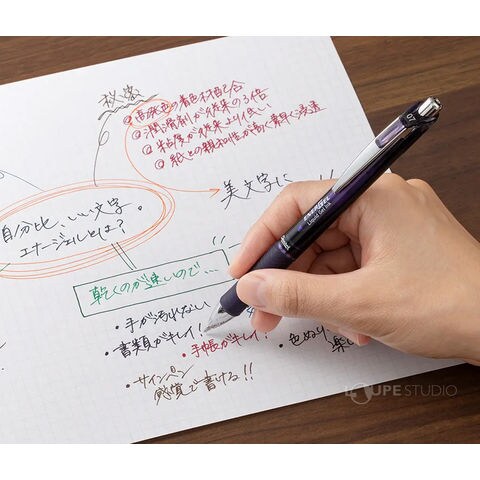 秘密
◎高発色の着色材配合
◎潤滑剤が従来の3倍
◎粘度が従来より低い
◎紙との親和性が高く素早く浸透
美文字に
自分比、いい文字。
エナージェルとは?
乾くのが速いので…
・手が汚れない
・書類がキレイ!
・手帳がキレイ!
・色ぬり
・サインペン
感覚で書ける!!
07
ENERGEL
Liquid Gel Ink
Pentel
LOUPE STUDIO